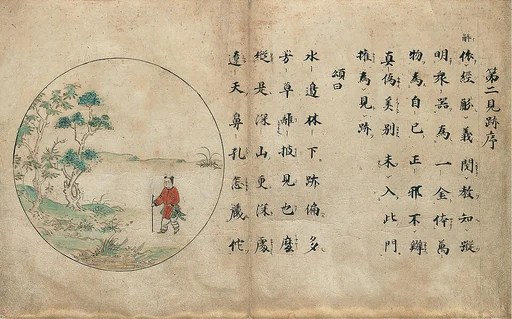 第二見跡序
解
依經義閲教知蹤
明衆器為一金体萬
物為自己正邪不辨
真偽奚別未入此門
權為見跡
頌曰
水邊林下跡偏多
芳草離披見也麼
縱是深山更深處
遼天鼻孔怎藏他